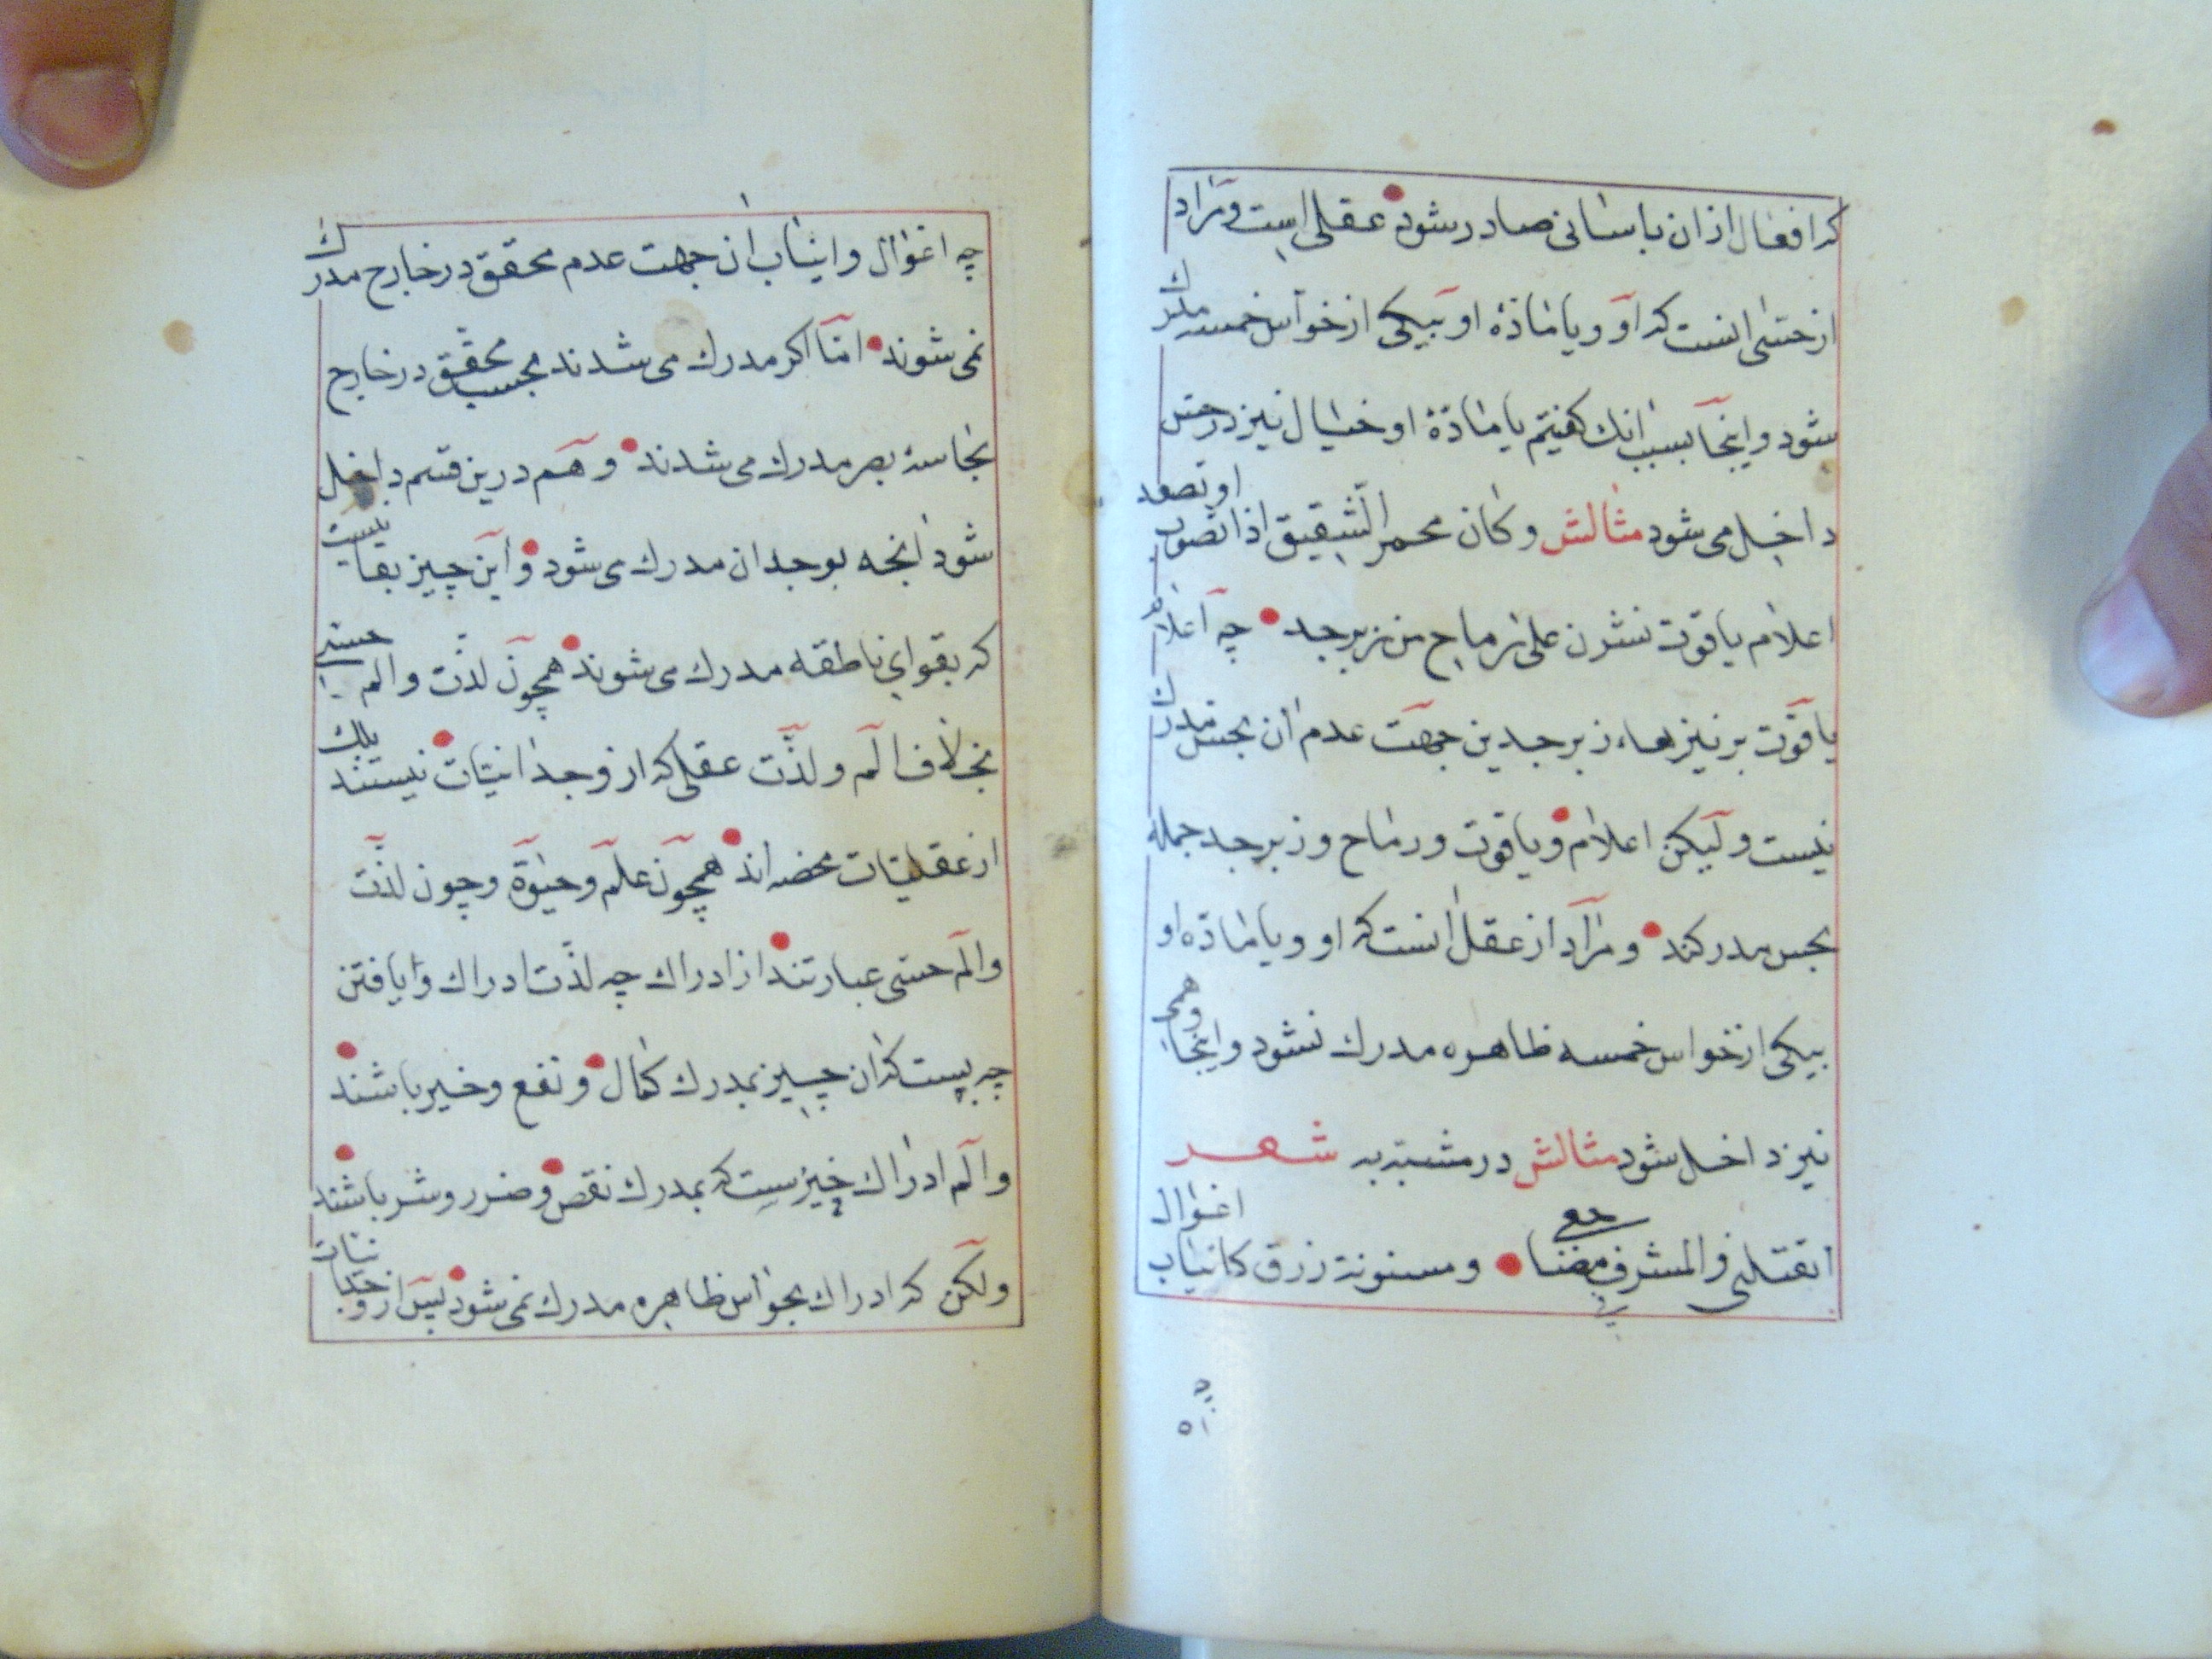 که افعال از ان باسانی صادر شود عقلی است و مراد
از حسّی انست که او و یا مادّهٔ او بیکی از خواس خمسه مدرك
شود و اینجا بسبب انك کفتیم یا مادّهٔ او خیال نیز در حس
داخل می شود مثالش و کان محمر الشقیق اذا تصوب او تصعد
اعلام یاقوت نشرن علی رماح من زبرجد چه اعلام
یاقوت بر نیزهاء زبرجدین جهت عدم ان بحس مدرك
نیست و لیکن اعلام و یاقوت و رماح و زبرجد جمله
بحس مدرکند و مراد از عقل انست که او و یا مادّه او
بیکی از خواس خمسه ظاهره مدرك نشود و اینجا وهمی
نیز داخل شود مثالش در مشبّه به شعر
ایقتلنی والمشرفی مضاجعی ومسنونة زرق کانیاب اغوال
ه ا
چه اغوال و انیاب ان جهت عدم محقق در خارج مدرك
نمی شوند امّا اکر مدرك می شدند بحسب محقق در خارج
بخاسهٔ بصر مدرك می شدند و هم درین قسم داخل
شود انچه بوجدان مدرك می شود و این چیز یقاییست
که بقوای ناطقه مدرك می شوند همچون لذّت و الم حسی
بخلاف الم و لذّت عقلی که از وجدانیّات نیستند بلك
از عقلیّات محضه اند همچون علم و حیوة و چون لذّت
و الم حسّی عبارتند از ادراك چه لذّت ادراك و ایافتن
چیزیست که ان چیز بمدرك کمال و نفع و خیر باشند
و الم ادراك چیزیست که بمدرك نقص و ضرر و شر باشند
و لکن که ادراك بخواس ظاهره مدرك نمی شود پس از وجدانیات